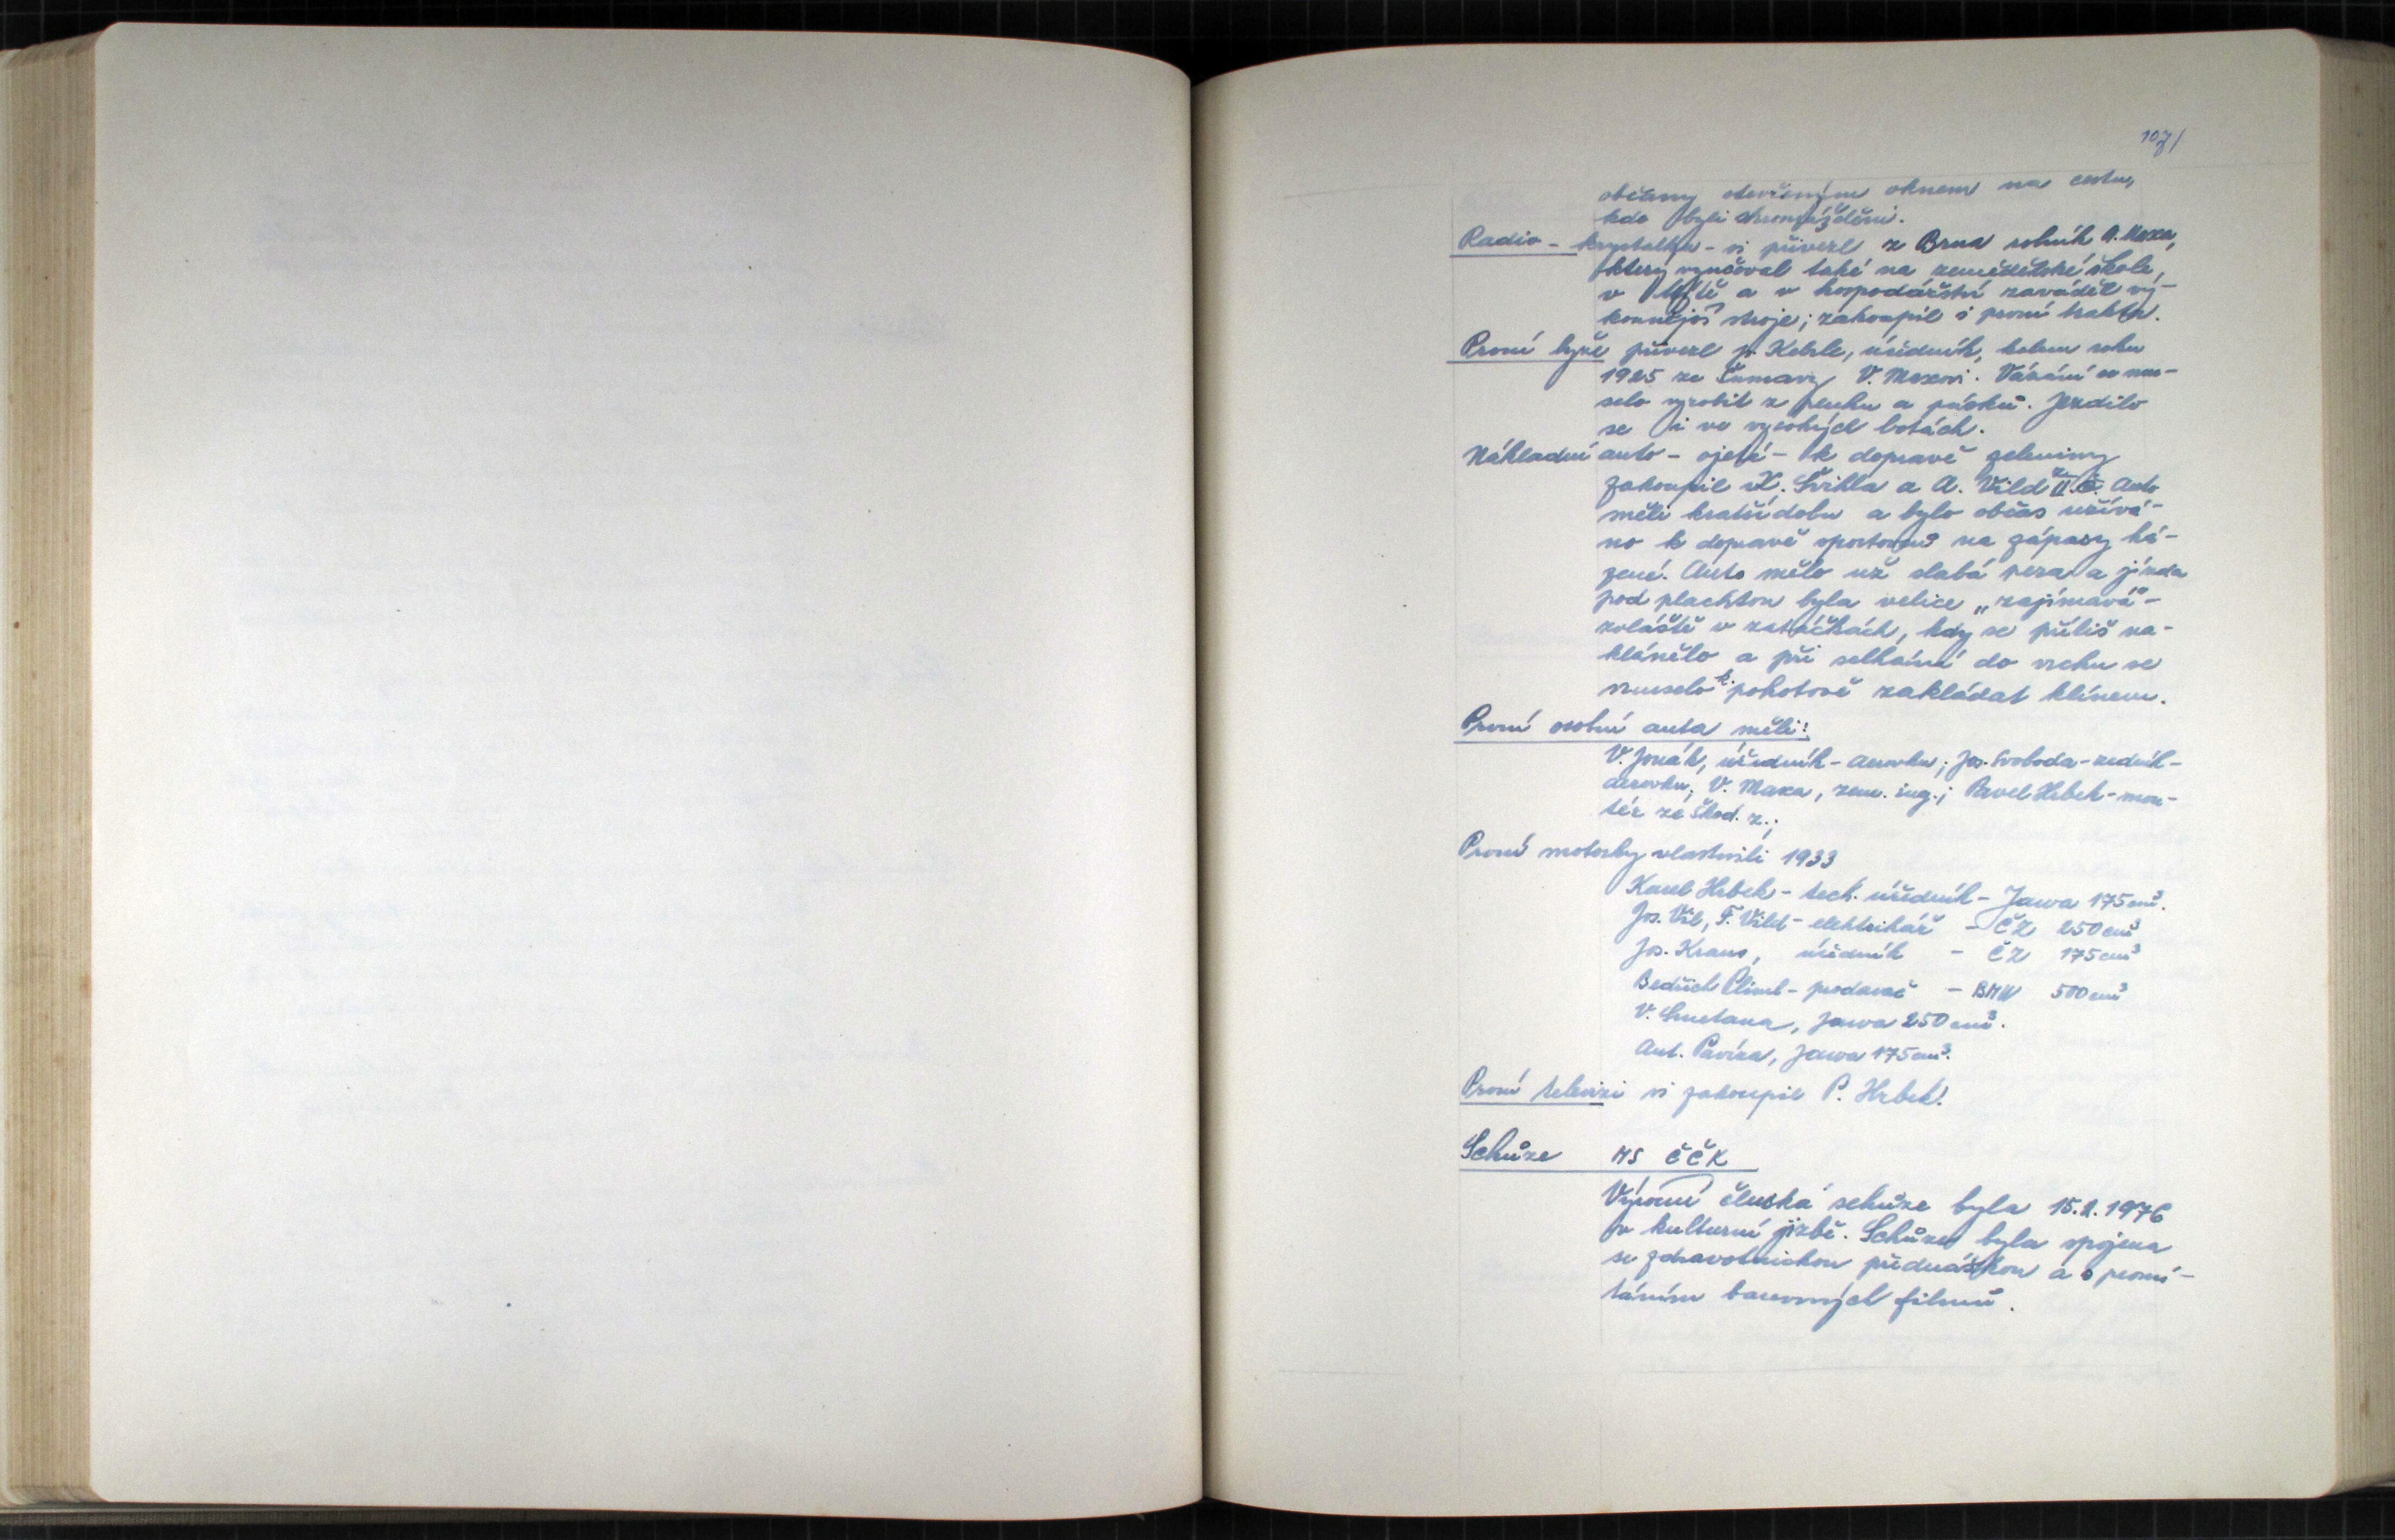 107/
občany otevřeným oknem na cestu,
kde byli shromážděni.
Radio - krystalku - si přivezl z Brna rolník A. Maxa,
který vyučoval také na zemědělské škole,
v a v hospodářství zaváděl vý-
konnější stroje; zakoupil i první traktor.
První lyže přivezl p. Kebrle, úředník, kolem roku
1925 ze Šumavy V. Maxovi. Vázání se mu-
selo vyrobit z plechu a pásků. Jezdilo
se i ve vysokých botách.
Nákladní auto - ojeté - k dopravě zeleniny
zakoupil K. Svihla a A. Vild z II. č. Auto
měli kratší dobu a bylo občas užívá-
no k dopravě sportovců na zápasy há-
zené. Auto mělo už slabá pera a jízda
pod plachtou byla velice „zajímavá"-
zvláště v zatáčkách, kdy se příliš na-
klánělo a při selhání do vrchu se
muselo pohotově zakládat klínem.
První osobní auta měli:
V. Jonák, úředník - aerovku; Jos. Svoboda - zedník -
aerovku; V. Maxa, zem. ing.; Pavel Hrbek - mon-
tér ze Škod. z.;
První motorky vlastnili 1933
Karel Hrbek - tech. úředník - Jawa 175 cm³.
Jos. Vil, F. Vild - elektrikář - ČZ 250 cm³
Jos. Kraus, úředník - ČZ 175 cm³
Bedřich Pliml - prodavač - BMW 500 cm³
V. Smetana, Jawa 250 cm³.
Ant. Pavíza, Jawa 175 cm³.
První televizi si zakoupil P. Hrbek.
Schůze MS ČČK
Výroční členská schůze byla 15.2.1976
v kulturní jizbě. Schůze byla spojena
se zdravotnickou přednáškou a s promí-
táním barevných filmů.